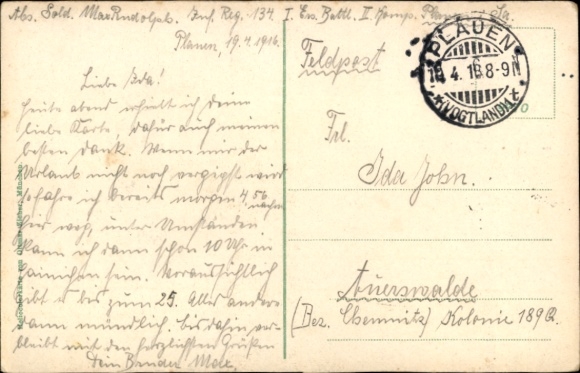 Abs. Sold. Max Rudolph. Inf. Reg. 134. I. Ers. Battl. II. Komp. Plauen i. Sa.
Plauen, 19.4.1916.
Feldpost
PLAUEN
19.4.16.8-9N
(VOGTLAND)1t
Liebe Ida!
Heute abend erhielt ich deine
liebe Karte, dafür auch meinen
besten Dank. Wenn mir der
Urlaub nicht noch vergipst wird
fahre ich bereits morgen 4.56 nachm
hier weg, unter Umständen
kann ich dann schon 10 Uhr in
ainichen sein. Voraussichtlich
gibt es bis zum 25. Alles andere
dann mündlich. bis dahin ver-
bleibt mit den herzlichsten Grüßen
Dein Bruder
Frl.
Ida John.
Auerswalde
(Bez. Chemnitz) Kolonie 189